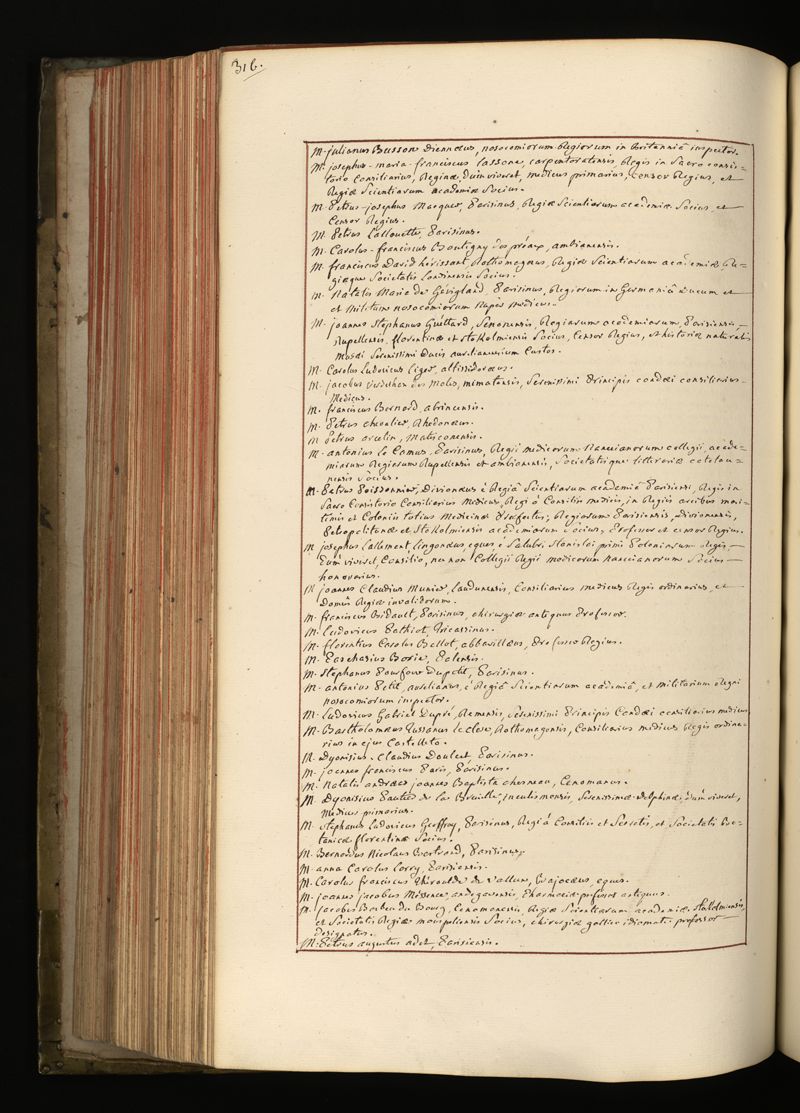 316.
M. julianus Busson Diennæus, nosocomiorum Regiorum in Britanniâ inspector.
M. josephus-maria-franciscus Lassone, carpentoratensis, Regis in Sacro consis-
torio Consiliarius, Reginæ, dum viveret, medicus primarius, censor Regius, et
Regiæ Scientiarum academiæ Socius.
M. Petrus-josephus Macquer, Parisinus, Regiæ Scientiarum academiæ Socius, et
Censor Regius.
M. Petrus Lallouette, Parisinus.
M. Carolus-franciscus Bouligny des préaux, ambianensis.
M. franciscus David hérissant Rothomagæus, Regiæ Scientiarum academiæ Re-
giæque Societatis Londinensis Socius.
M. Natalis Maria de Gevigland, Parisinus, Regiorum in Germaniâ Ducum et
et Militum nosocomiorum nuper medicus.
M. joannes Stephanus Guéttard, Senonensis, Regiarum academiarum, Parisiensis
Rupellensis, florentinæ et Stokolmiensis Socius, Censor Regius, et historiæ naturalis
Musæi Serenissimi Ducis aurelianensium Custos.
M. Carolus Ludovicus Liger, altissidoræus.
M. jacobus Verdelhan des Moles, mimatensis, Serenissimi Principis condæi consiliarius-
Medicus.
M. franciscus Bernard, abrincensis.
M. Petrus chevalier, Rhedonæus.
M. Petrus arcelin, Matisconensis.
M. antonius le Camus, Parisinus, Regii medicorum Nanceianorum collegii, acade-
miarum Regiarum Rupellensis et ambianensis, Societatisque litterariæ catalau-
nensis Socius.
M. Petrus Poissonnier, Divionæus è Regiâ Scientiarum academiâ Parisiensi, Regis in
Sacro Consistorio Consiliarius Medicus, Regi à Consiliis medicis, in Regiis arcibus mari-
timis et Coloniis totius Medicinæ Præfectus, Regiarum Parisiensis, divionensis,
Petropolitanæ et Stokolmiensis academiarum Socius, Professor et censor Regius.
M. josephus Lallement, Lingonæus eques è Salubri Stanislai primi Poloniarum Regis
Dum viveret, Consilio, nec non Collegii Regii medicorum Nanceianorum Socius
honorarius.
M. joannes Claudius Munier, Laudunensis, Consiliarius medicus Regis ordinarius, et
Domûs Regiæ invalidorum.
M. franciscus Bidault, Parisinus, chirurgiæ antiquus Professor.
M. Ludovicus Pathiot, Tricassinus.
M. florentius Carolus Bellot, abbavillæus, Professor Regius.
M. Paschasius Borie, Palensis.
M. Stephanus Pourfour Dupetit, Parisinus.
M. antonius Petit, aurelianus, è Regiâ Scientiarum academiâ, et militarium Regni
nosocomiorum inspector.
M. Ludovicus Gabriel Dupré, Remensis, Serenissimi Principis Condæi consiliarius medicus
M. Bartholomæus Tussanus le clerc, Rothomagensis, Consiliarius medicus Regis ordina-
rius in ejus Castelleto.
M. Dyonisius-Claudius Doulcet Parisinus.
M. joannes franciscus Paris, Parisinus.
M. Natalis andræas joannes Baptista chesneau, Cenomanus.
M. Dyonisius Pautier de la Breuille, inculismensis, Serenissimæ Delphinæ, Dum viveret,
Medicus primarius.
M. Stephanus Ludovicus Geoffroy, Parisinus, Regi à Consiliis et Secretis, et Societatis Bo-
tanicæ florentinæ Socius.
M. Bernardus Nicolaus Bertrand, Parisinus.
M. anna Carolus Lorry, Parisiensis.
M. Carolus franciscus Thiroulde de Vallun, Bajocæus, eques.
M. joannes jacobus Messence, andegavensis, Pharmaciæ professor antiquus.
M. jacobus Barbeu du Bourg, Cenomanensis, Regiæ Scientiarum academiæ Stokolmiensis
et Societatis Regiæ monspeliensis Socius, chirurgiæ gallico idiomate professor
designatus.
M. Petrus augustus adet, Parisiensis.